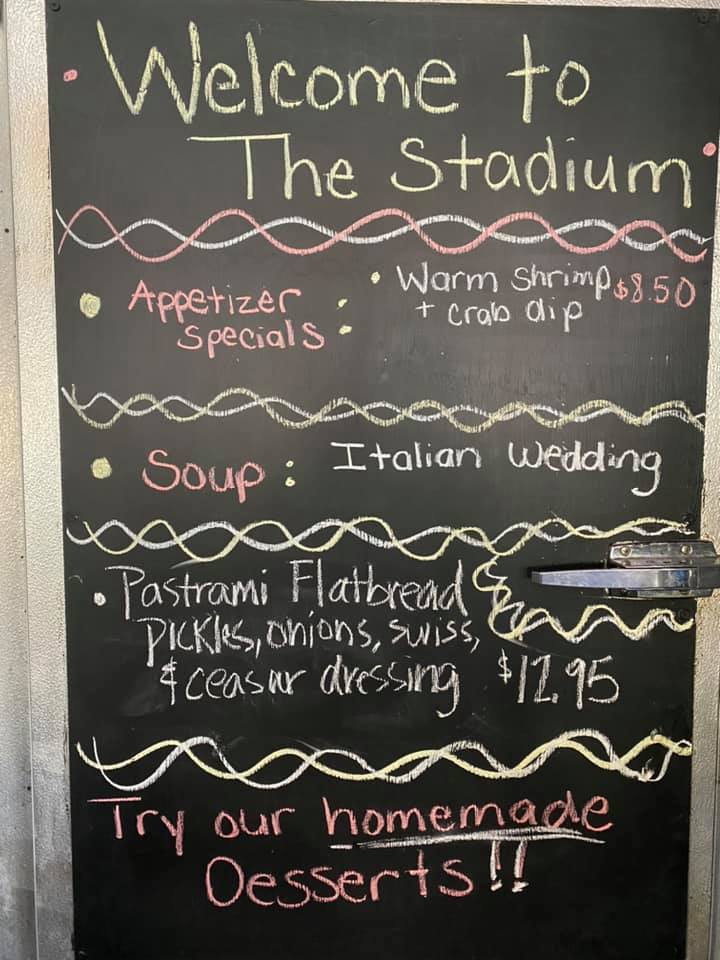 Welcome to
The Stadium
• Appetizer
Specials :
• Warm Shrimp $8.50
+ Crab dip
• Soup : Italian Wedding
• Pastrami Flatbread
pickles, onions, swiss,
& ceasar dressing $12.95
Try our homemade
Desserts!!